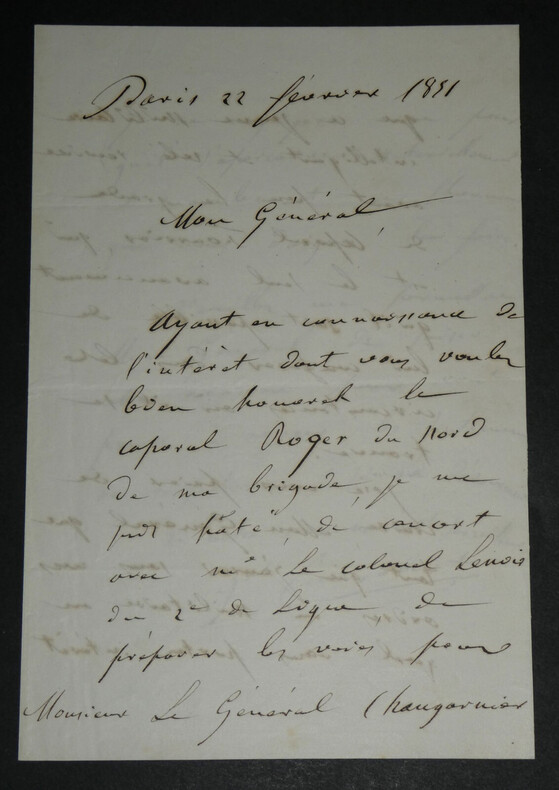 Paris 22 février 1851
Mon Général,
Ayant eu connaissance de
l'intérêt dont vous voulez
bien honorer le
caporal Roger du Nord
de ma brigade, je me
suis hâté, de concert
avec Mr Le colonel Lenoir
du 2e de Ligne de
préparer les voies pour
Monsieur Le Général Changarnier